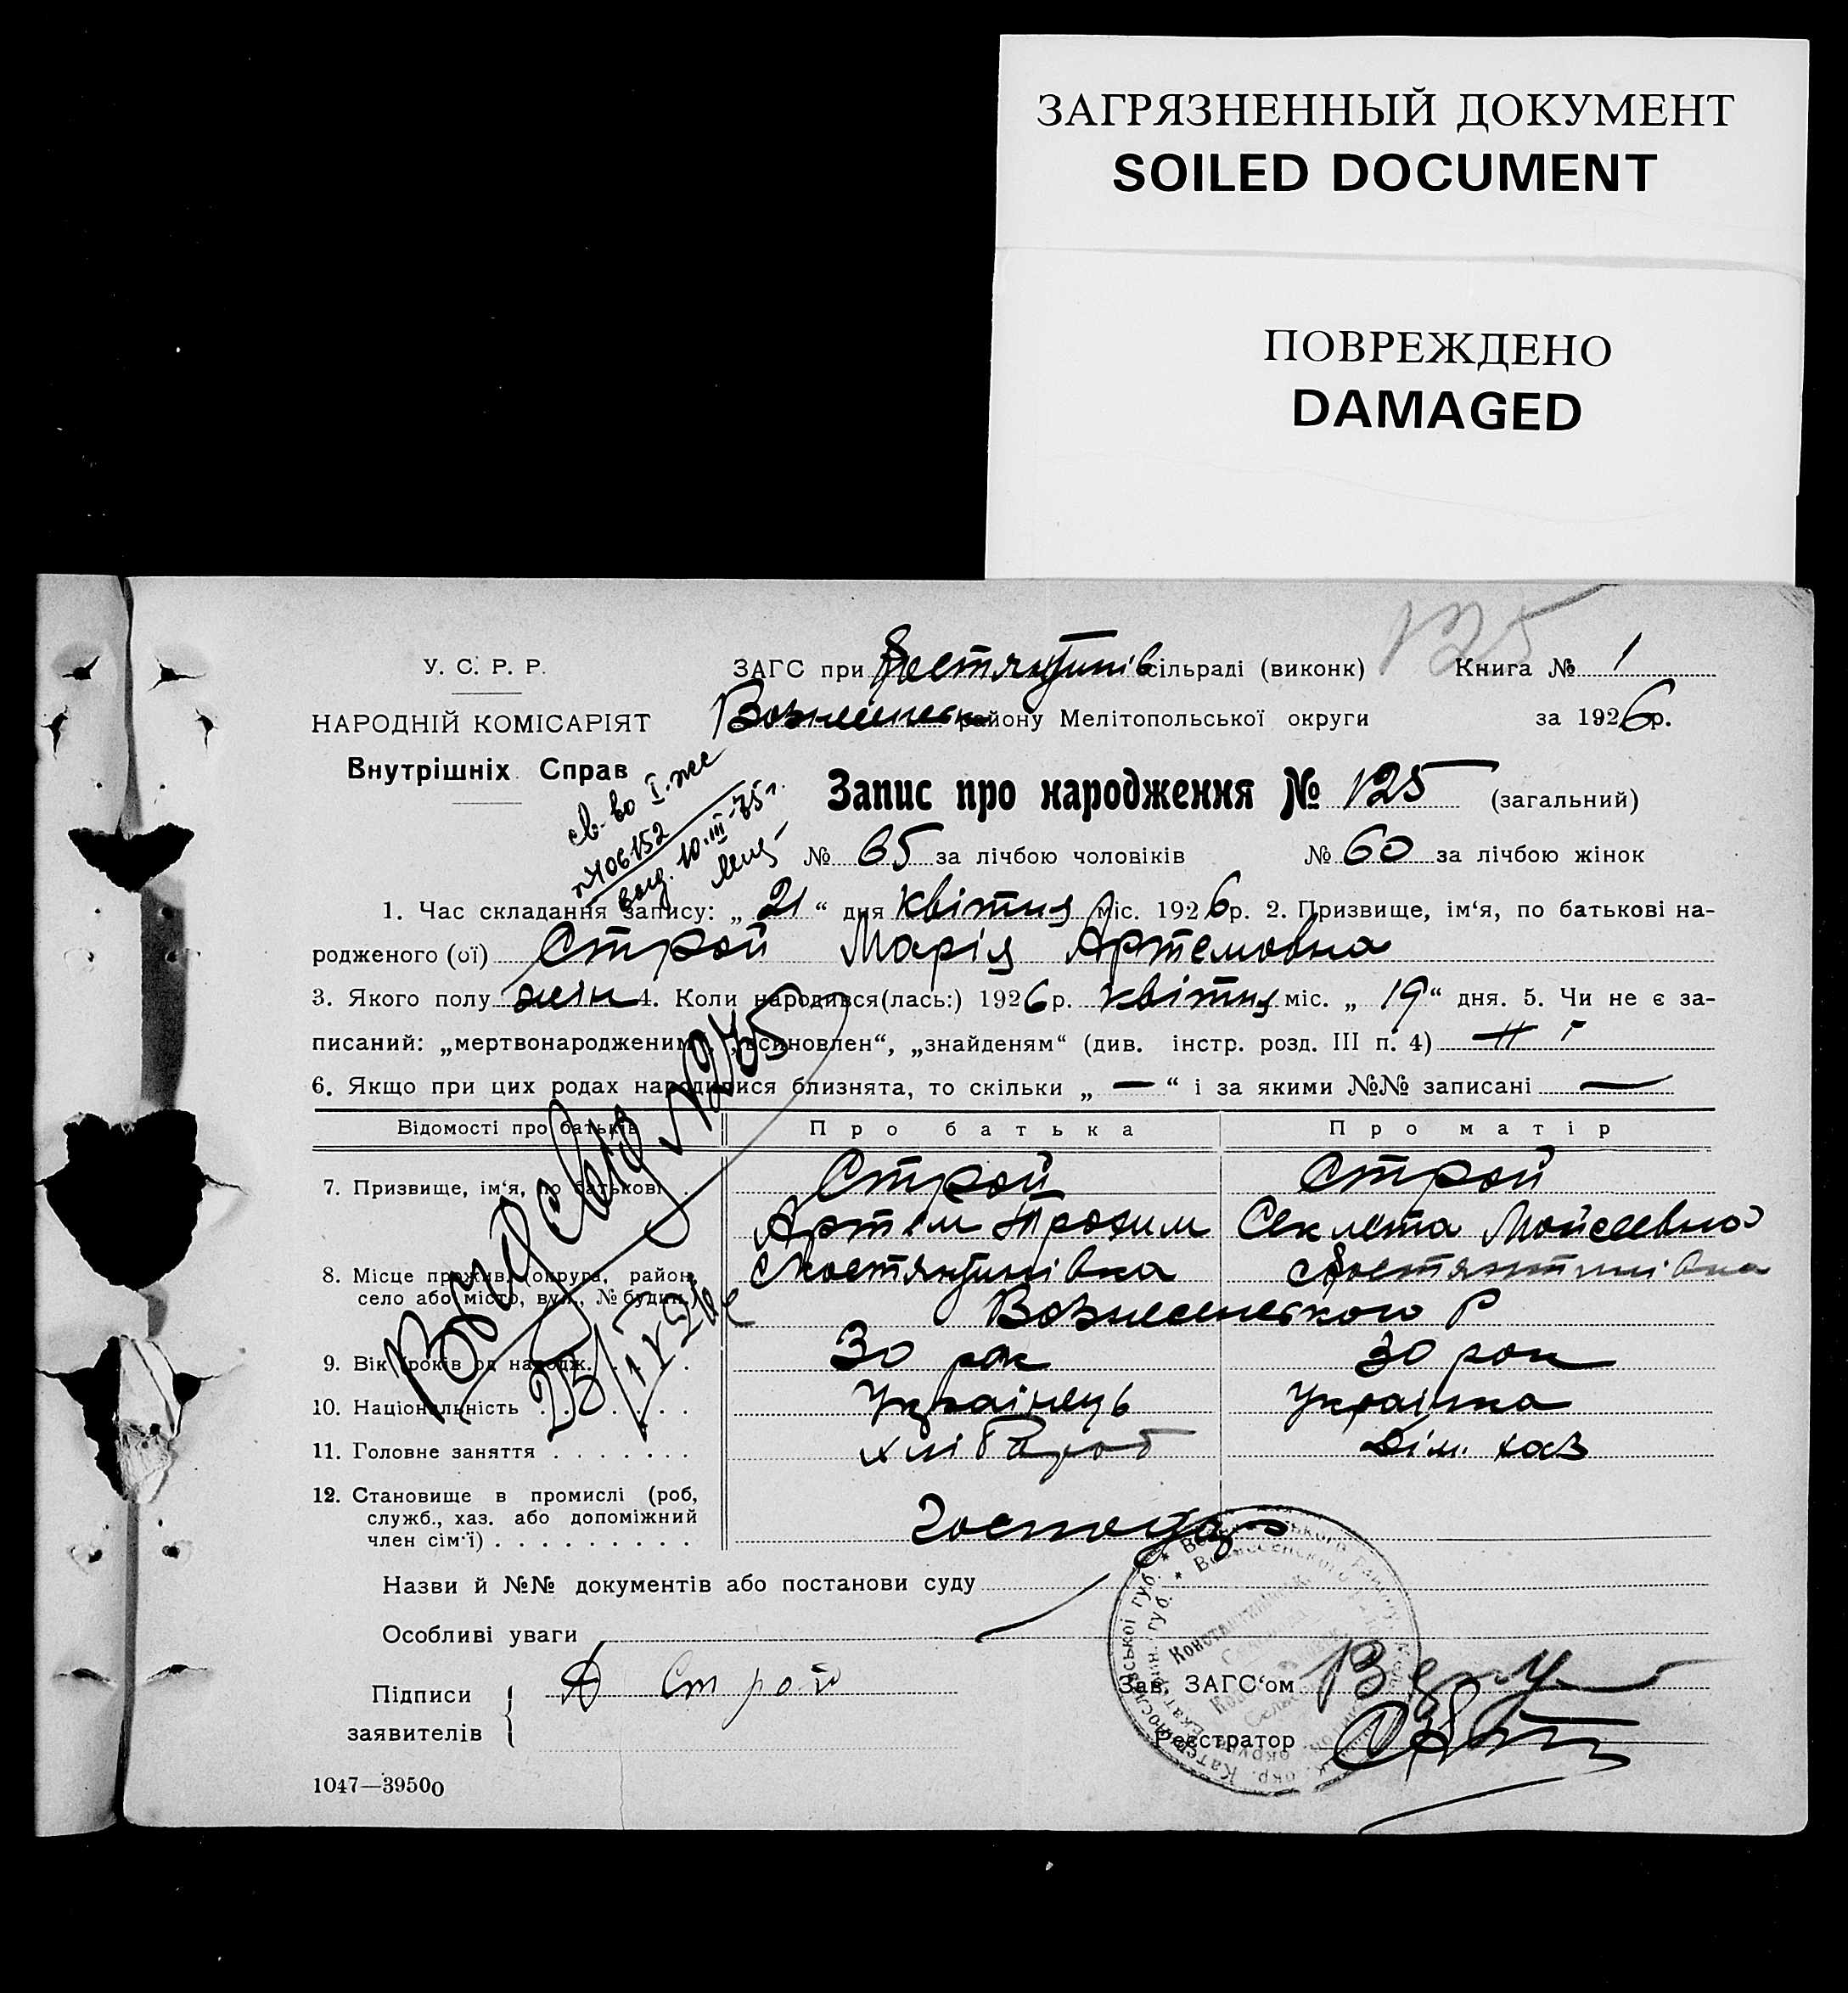 ЗАГРЯЗНЕННЫЙ ДОКУМЕНТ
SOILED DOCUMENT
ПОВРЕЖДЕНО
DAMAGED
125
У. С. Р. Р.
ЗАГС при сільраді (виконк)
Книга № 1
НАРОДНІЙ КОМІСАРІЯТ
району Мелітопольської округи
за 1926р.
Внутрішніх Справ
св-во I-
№406152
выд. 10.III-75г.
Запис про народження № 125 (загальний)
№ 65 за лічбою чоловіків № 60 за лічбою жінок
1. Час складання запису: „ 21 “ дня квітня міс. 1926р. 2. Призвище, ім‘я, по батькові на-
родженого (ої) Строй Марія Артемовна
3. Якого полу жін 4. Коли народився(лась:) 1926р. квітня міс. „ 19 “ дня. 5. Чи не є за-
писаний: „мертвонародженим“, „всиновлен“, „знайденям“ (див. інстр. розд. III п. 4)
6. Якщо при цих родах народилися близнята, то скільки „ — “ і за якими №№ записані —
Відомості про батьків Про батька Про матір
7. Призвище, ім‘я, по батькові . Строй Строй
Артем Трохим Секлета Мойсеевна
8. Місце прожив. (округа, район,
село або місто, вул., № будин.)
Вознесенського Р
9. Вік (років од народж. 30 рок 30 рок
10. Національність Українець Українка
11. Головне заняття хлібороб Дім. хаз
12. Становище в промислі (роб,
служб., хаз. або допоміжний
член сім‘ї) Господар
Назви й №№ документів або постанови суду
Особливі уваги
Підписи
заявителів
А Строй
Зав. ЗАГС‘ом
Реєстратор
1047—39500